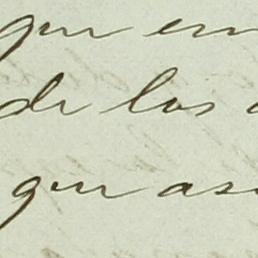 que en
de los
que as